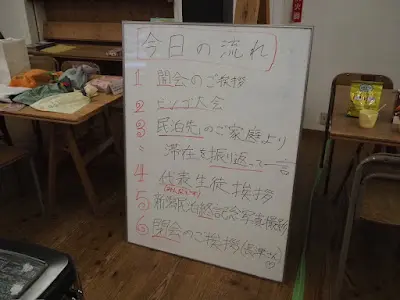 今日の流れ
1 開会のご挨拶
2 ビンゴ大会
3 民泊先のご家庭より
〃 滞在を振り返って一言
4 代表生徒挨拶
5 新潟民泊終記念写真撮影
6 閉会のご挨拶
火